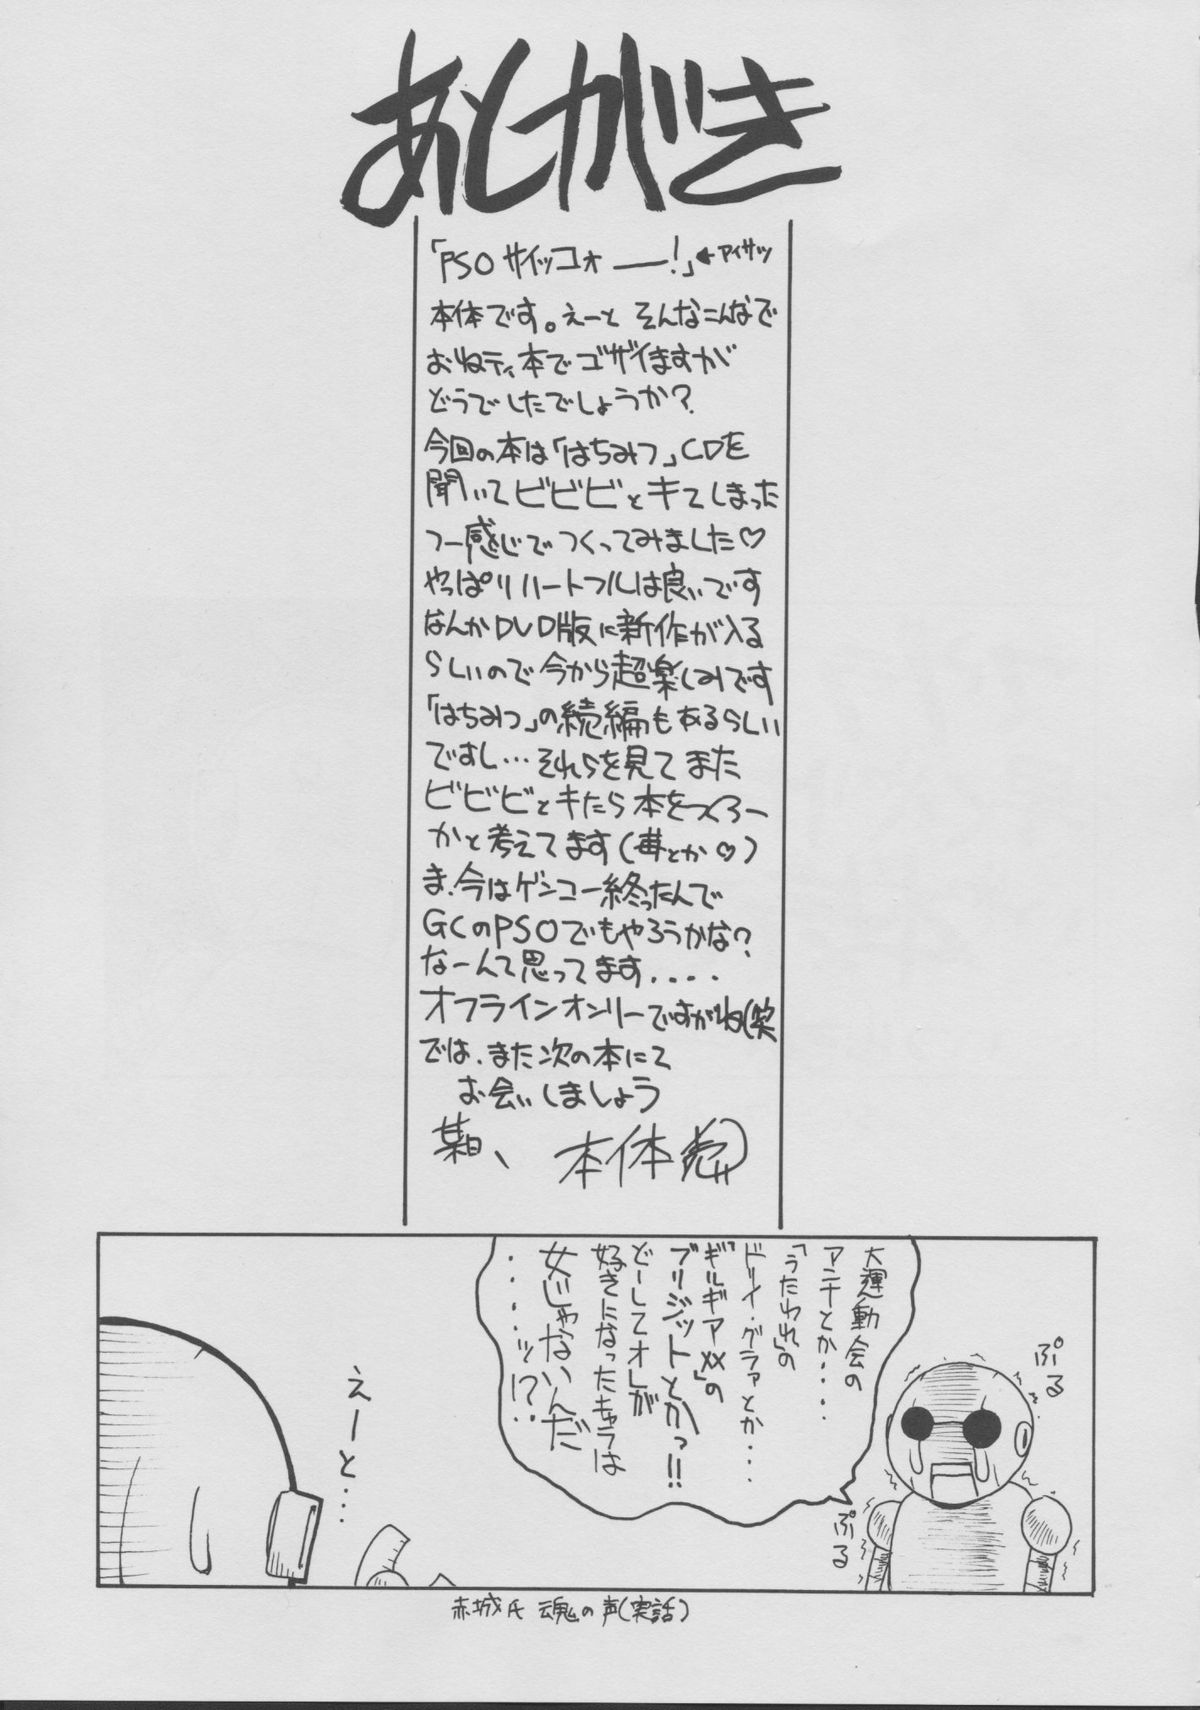 あとがき
「PSO サイッコォ――!」←アイサツ
本体です。えーと そんなこんなで
おねティ本でゴザイますが
どうでしたでしょうか?
今回の本は「はちみつ」CDを
聞いてビビビとキてしまった
つー感じでつくってみました♡
やっぱりハートフルは良いです
なんかDVD版に新作が入る
らしいので今から超楽しみです
「はちみつ」の続編もあるらしい
ですし…それらを見てまた
ビビビとキたら本をつくろー
かと考えてます(苺とか♡)
ま、今はゲンコー終ったんで
GCのPSOでもやろうかな?
なーんて思ってます....
オフラインオンリーですがね(笑
では、また次の本にて
お会いしましょう
某日、 本体
大運動会の
アニキとか....
「うたわれ」の
ドリィ・グラァとか...
「ギルギアXX」の
ブリジットとかっ!!
どーしてオレが
好きになったキャラは
女じゃないんだ
.....ッ!?
ぷる
ぷる
えーと...
赤城氏 魂の声(実話)